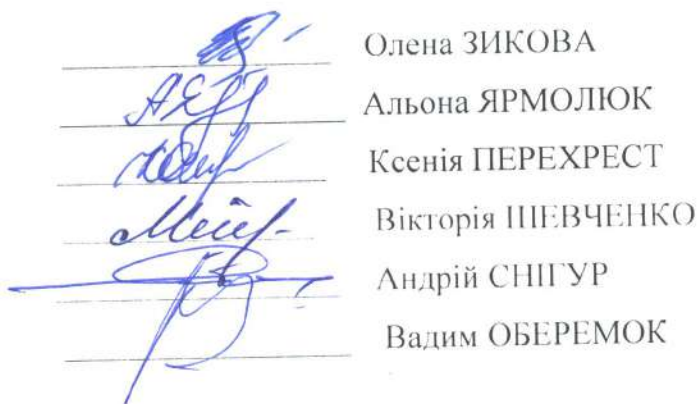 Олена ЗИКОВА
Альона ЯРМОЛЮК
Ксенія ПЕРЕХРЕСТ
Вікторія ШЕВЧЕНКО
Андрій СНІГУР
Вадим ОБЕРЕМОК